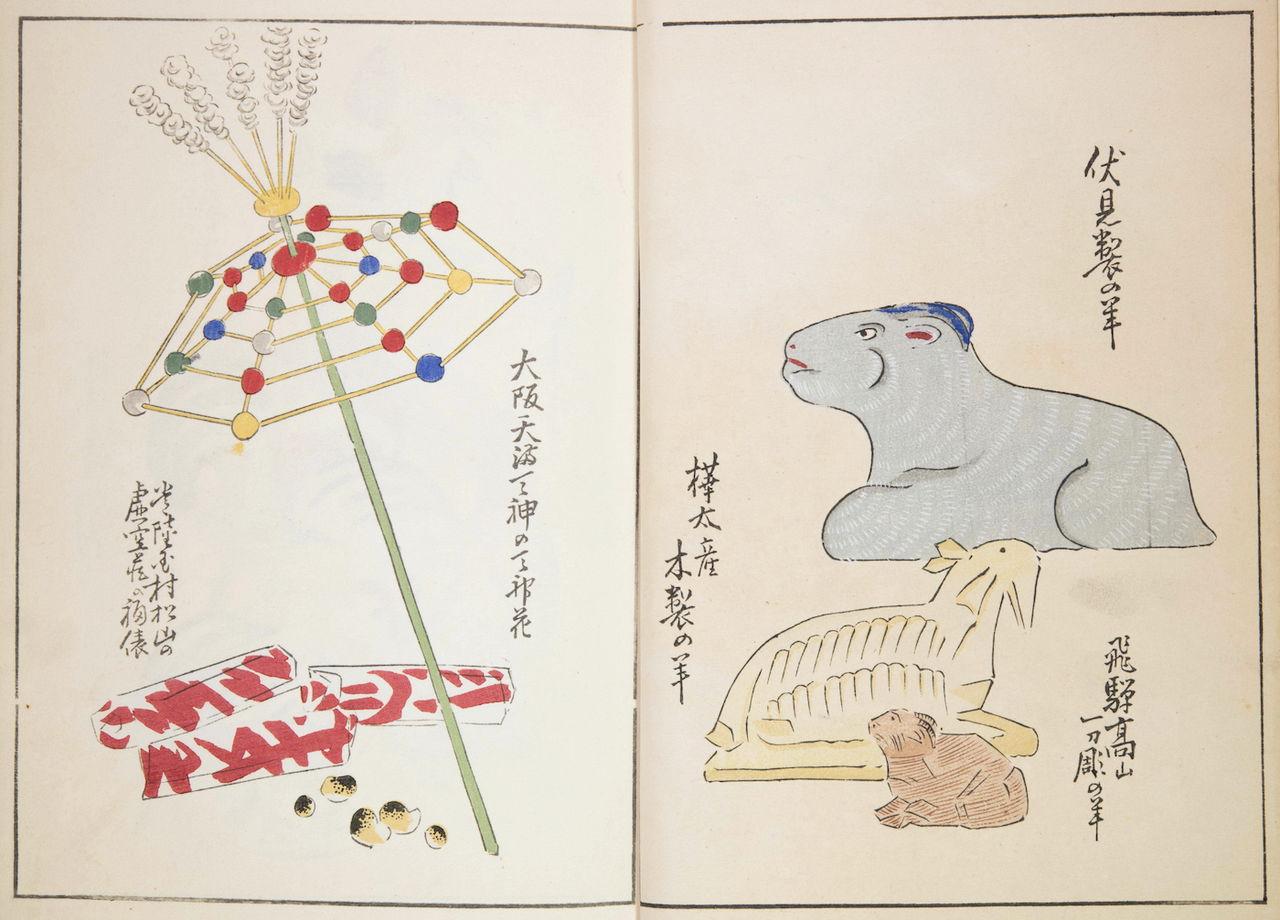 伏見製の羊
飛騨高山
一刀彫の羊
樺太産
木製の羊
大阪天満天神の天神花
常陸国村松山の
虚空蔵の福俵